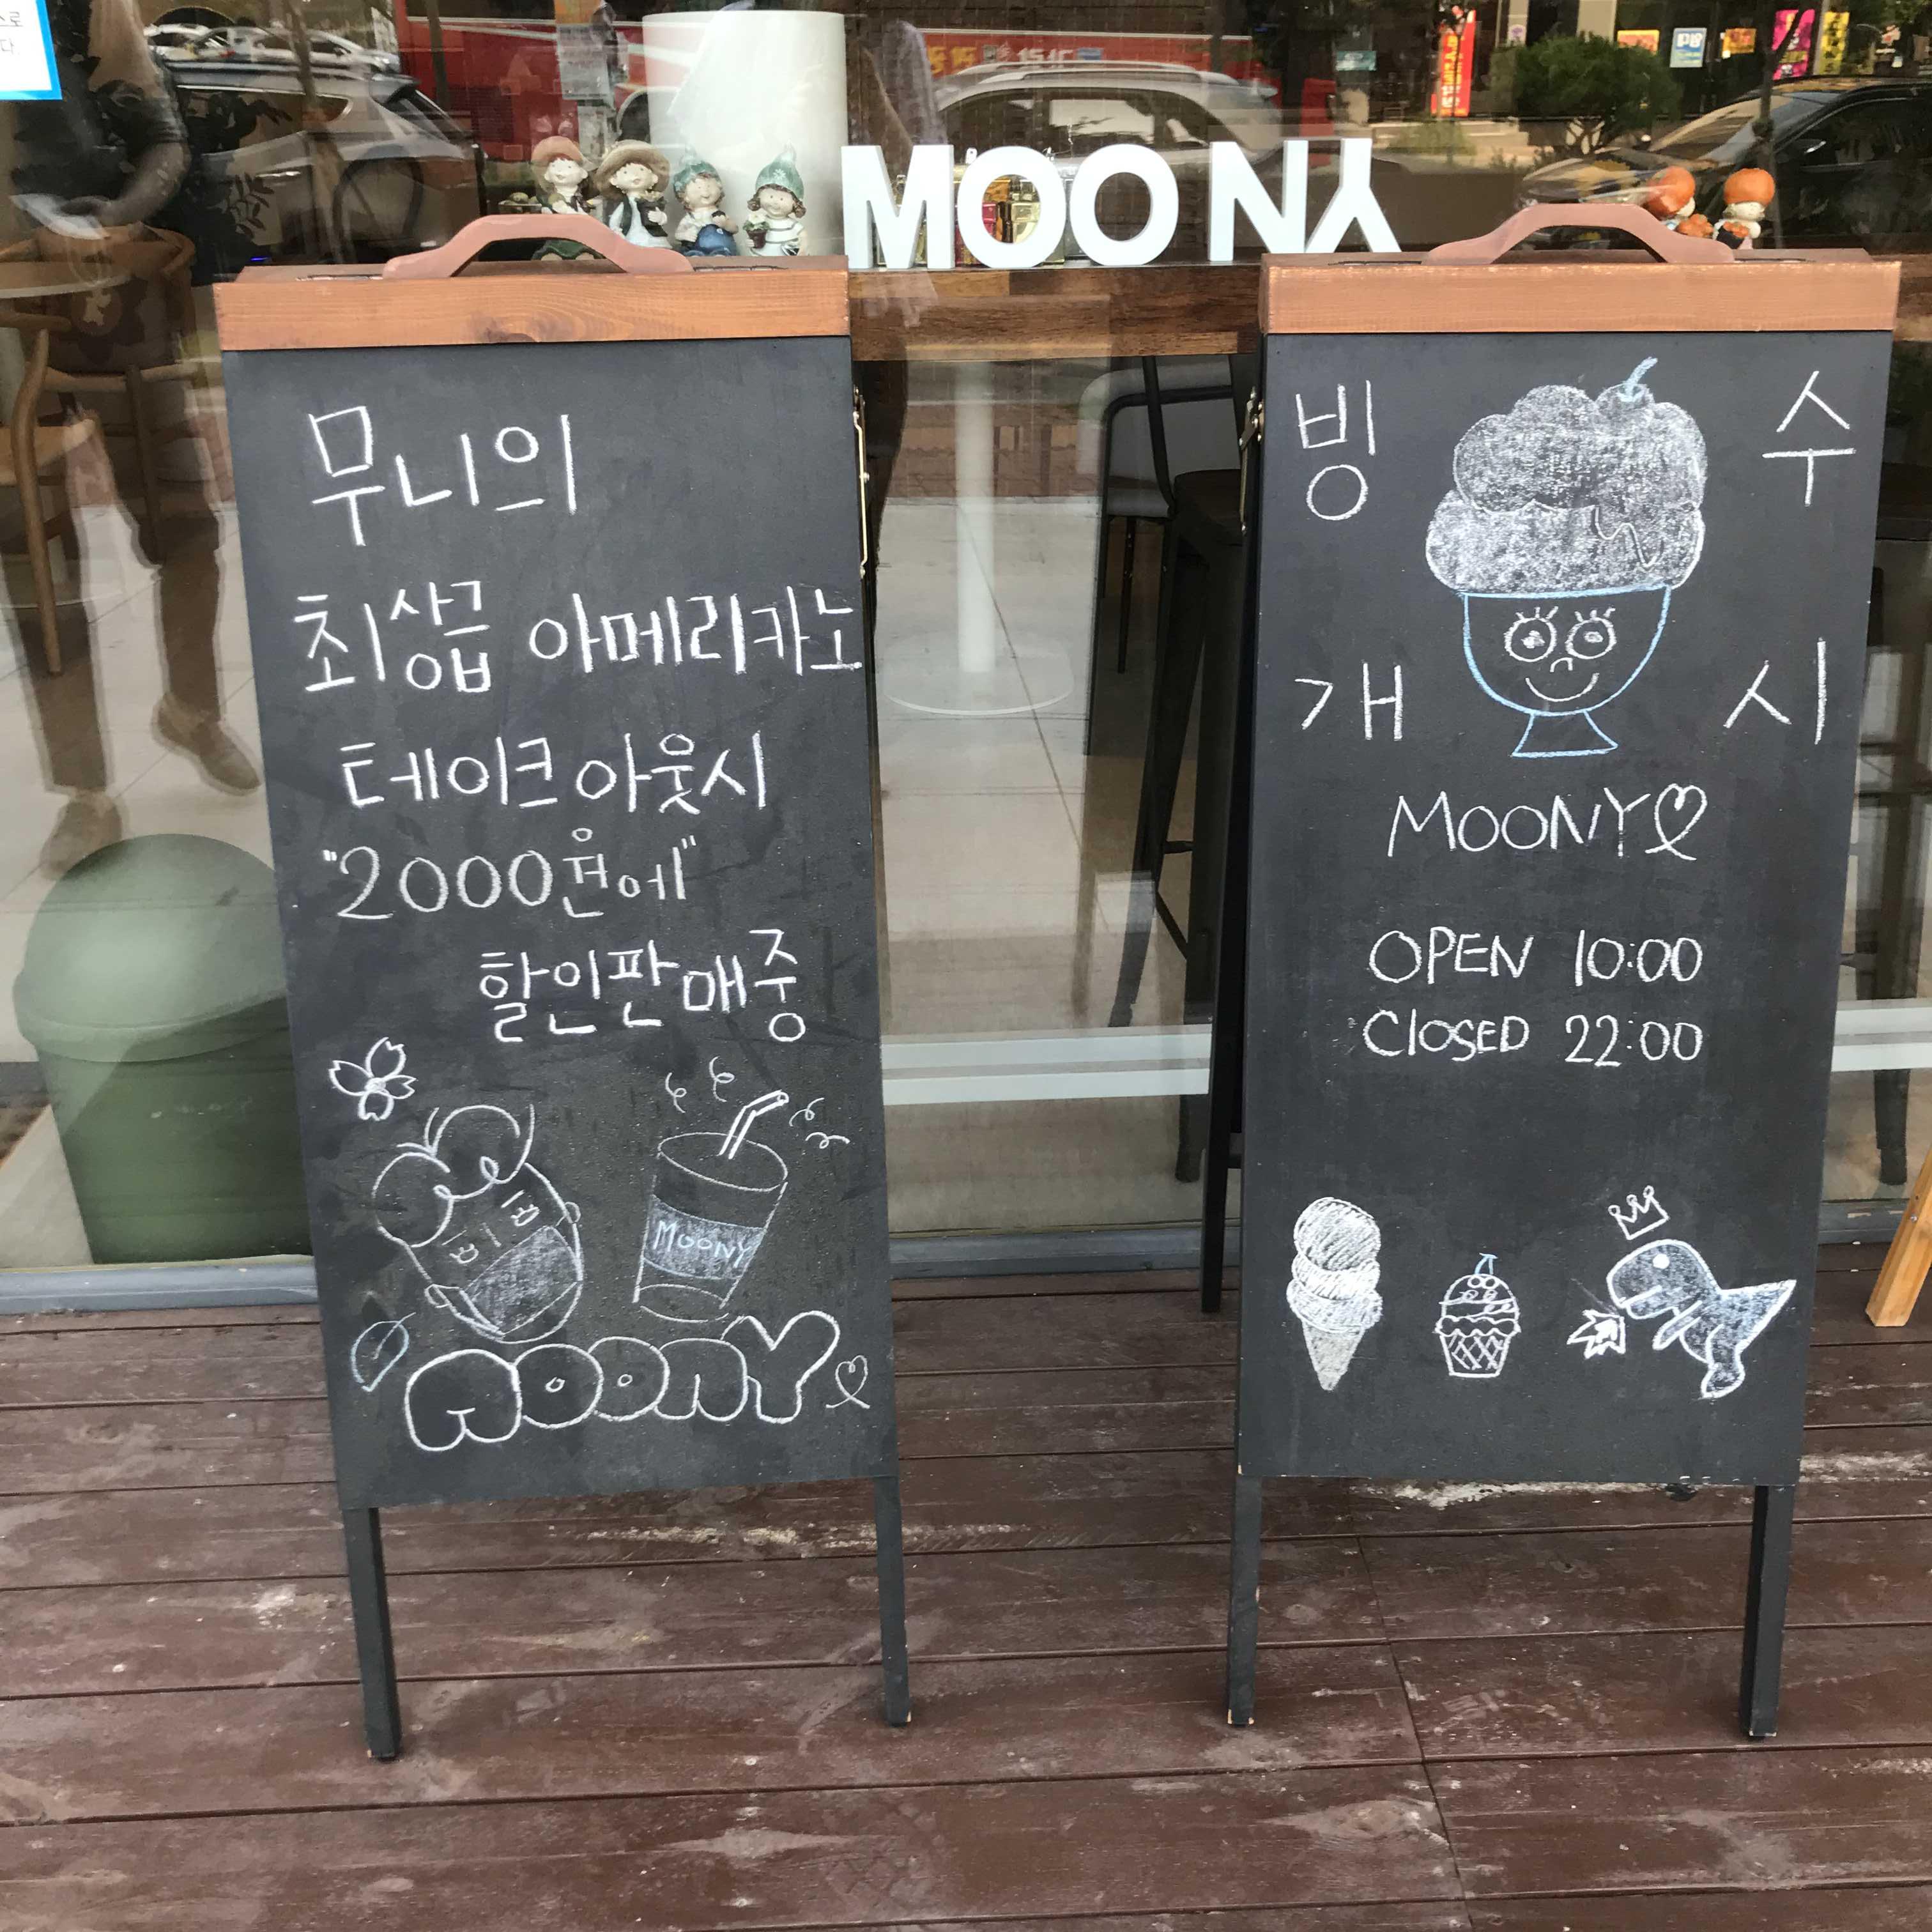 MOONY
무니의
최상급 아메리카노
테이크아웃시
"2000원에"
할인판매중
MOONY
MOONY
빙수
개시
MOONY
OPEN 10:00
CLOSED 22:00